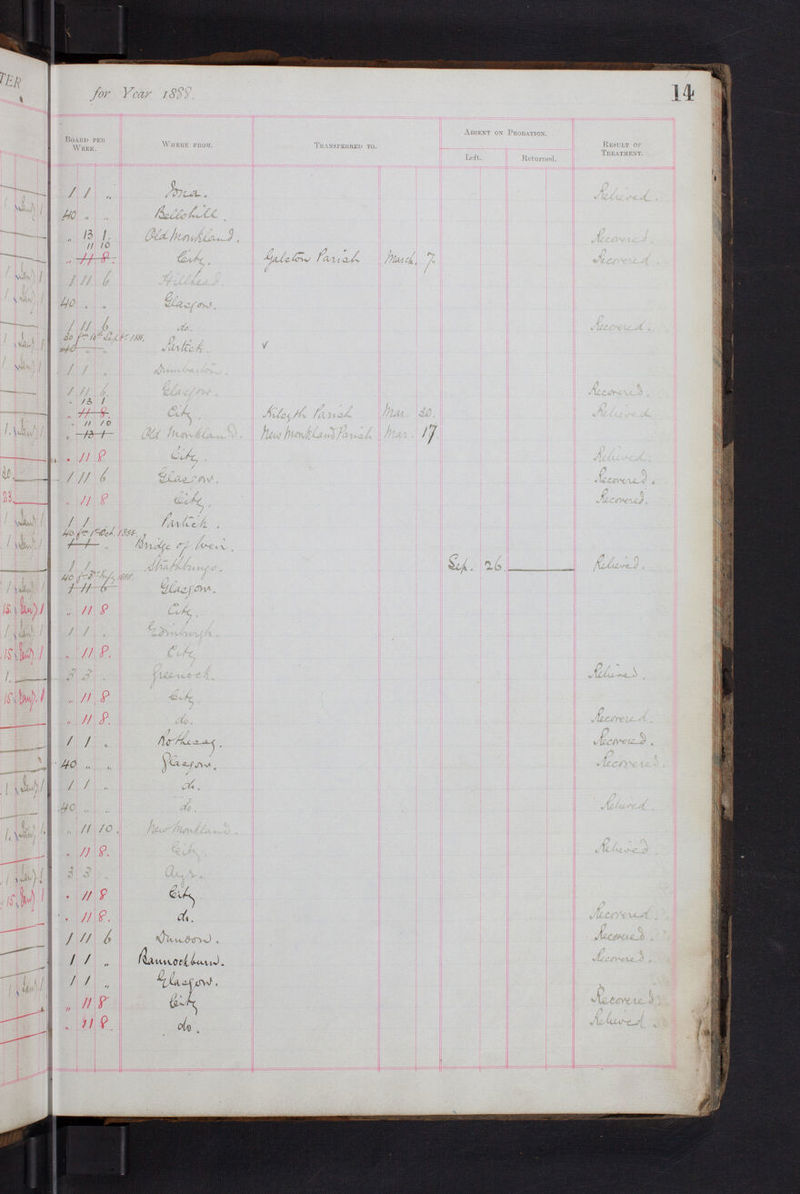 TER
for Year 1888.
14
Board per Week.
Where from.
Transferred to.
Absent on Probation.
Left.
Returned.
Result of Treatment.
1 1 " Iona. Relieved.
40 " " Bellshill.
" 13 1. Old Monkland. Recovered.
11 10
" 11 8. City. Galston Parish March. 7. Recovered.
1 11 6 Hillhead
40 . . Glasgow.
1 11 6 do. Recovered.
30 fm 10th Sept 1888.
40 Partick. v
1 1 . Dumbarton.
1 11 6. Glasgow. Recovered.
" 13 1
" 11 8. City. Kilsyth Parish Mar. 30. Relieved
" 11 10
" 13 1 Old Monkland. New Monkland Parish Mar. 17.
" 11 8 City. Relieved.
1 11 6 Glasgow. Recovered.
" 11 8 City. Recovered.
1 1 . Partick.
40 fm 1st Oct. 1888.
1 1 . Bridge of Weir.
1 1 . Strathbungo. Sep. 26. Relieved.
40 1888.
1 11 6 Glasgow.
" 11 8 City.
1 1 . Edinburgh.
" 11 8. City
3 3 . Greenock. Relieved.
" 11 8 City
" 11 8. do. Recovered.
1 1 " Rothesay. Recovered.
40 " " Glasgow. Recovered.
1 1 " do.
40 " " do. Relieved
" 11 10. New Monkland.
" 11 8. City. Relieved
3 3 . Ayr.
" 11 8 City
" 11 8. do. Recovered.
1 11 6 Dunoon. Recovered.
1 1 " Bannockburn. Recovered.
1 1 " Glasgow.
" 11 8 City Recovered.
" 11 8. do. Relieved.